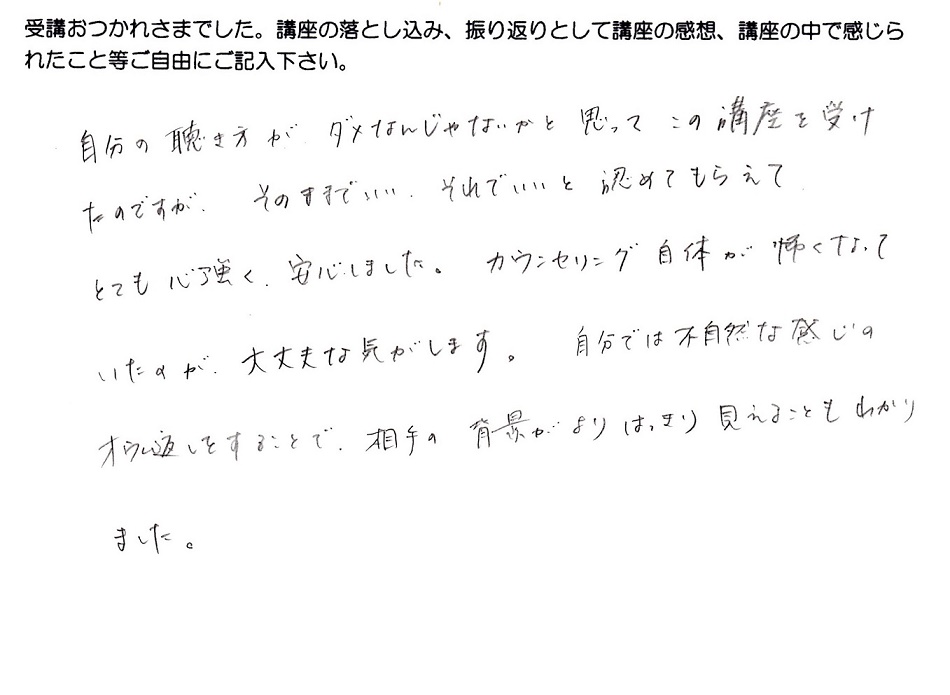 受講おつかれさまでした。講座の落とし込み、振り返りとして講座の感想、講座の中で感じら
れたこと等ご自由にご記入下さい。
自分の聴き方が ダメなんじゃないかと 思って この講座を受け
たのですが、 そのままでいい、それでいいと 認めてもらえて
とても心強く、安心しました。 カウンセリング自体が 怖くなって
いたのが、大丈夫な気がします。 自分では不自然な感じの
オウム返しをすることで、相手の 背景がよりはっきり見えることもわかり
ました。